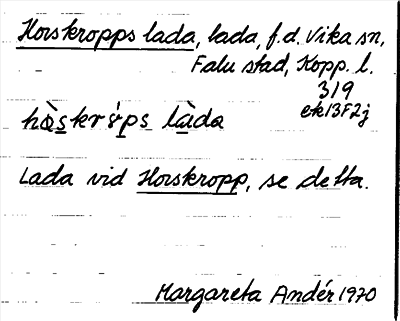 Horskropps lada, lada, f.d. Vika sn,
Falu stad, Kopp. l.
319
ek13F2j
hòskrɤ́ps làda
Lada vid Horskropp, se detta.
Margareta Andér 1970